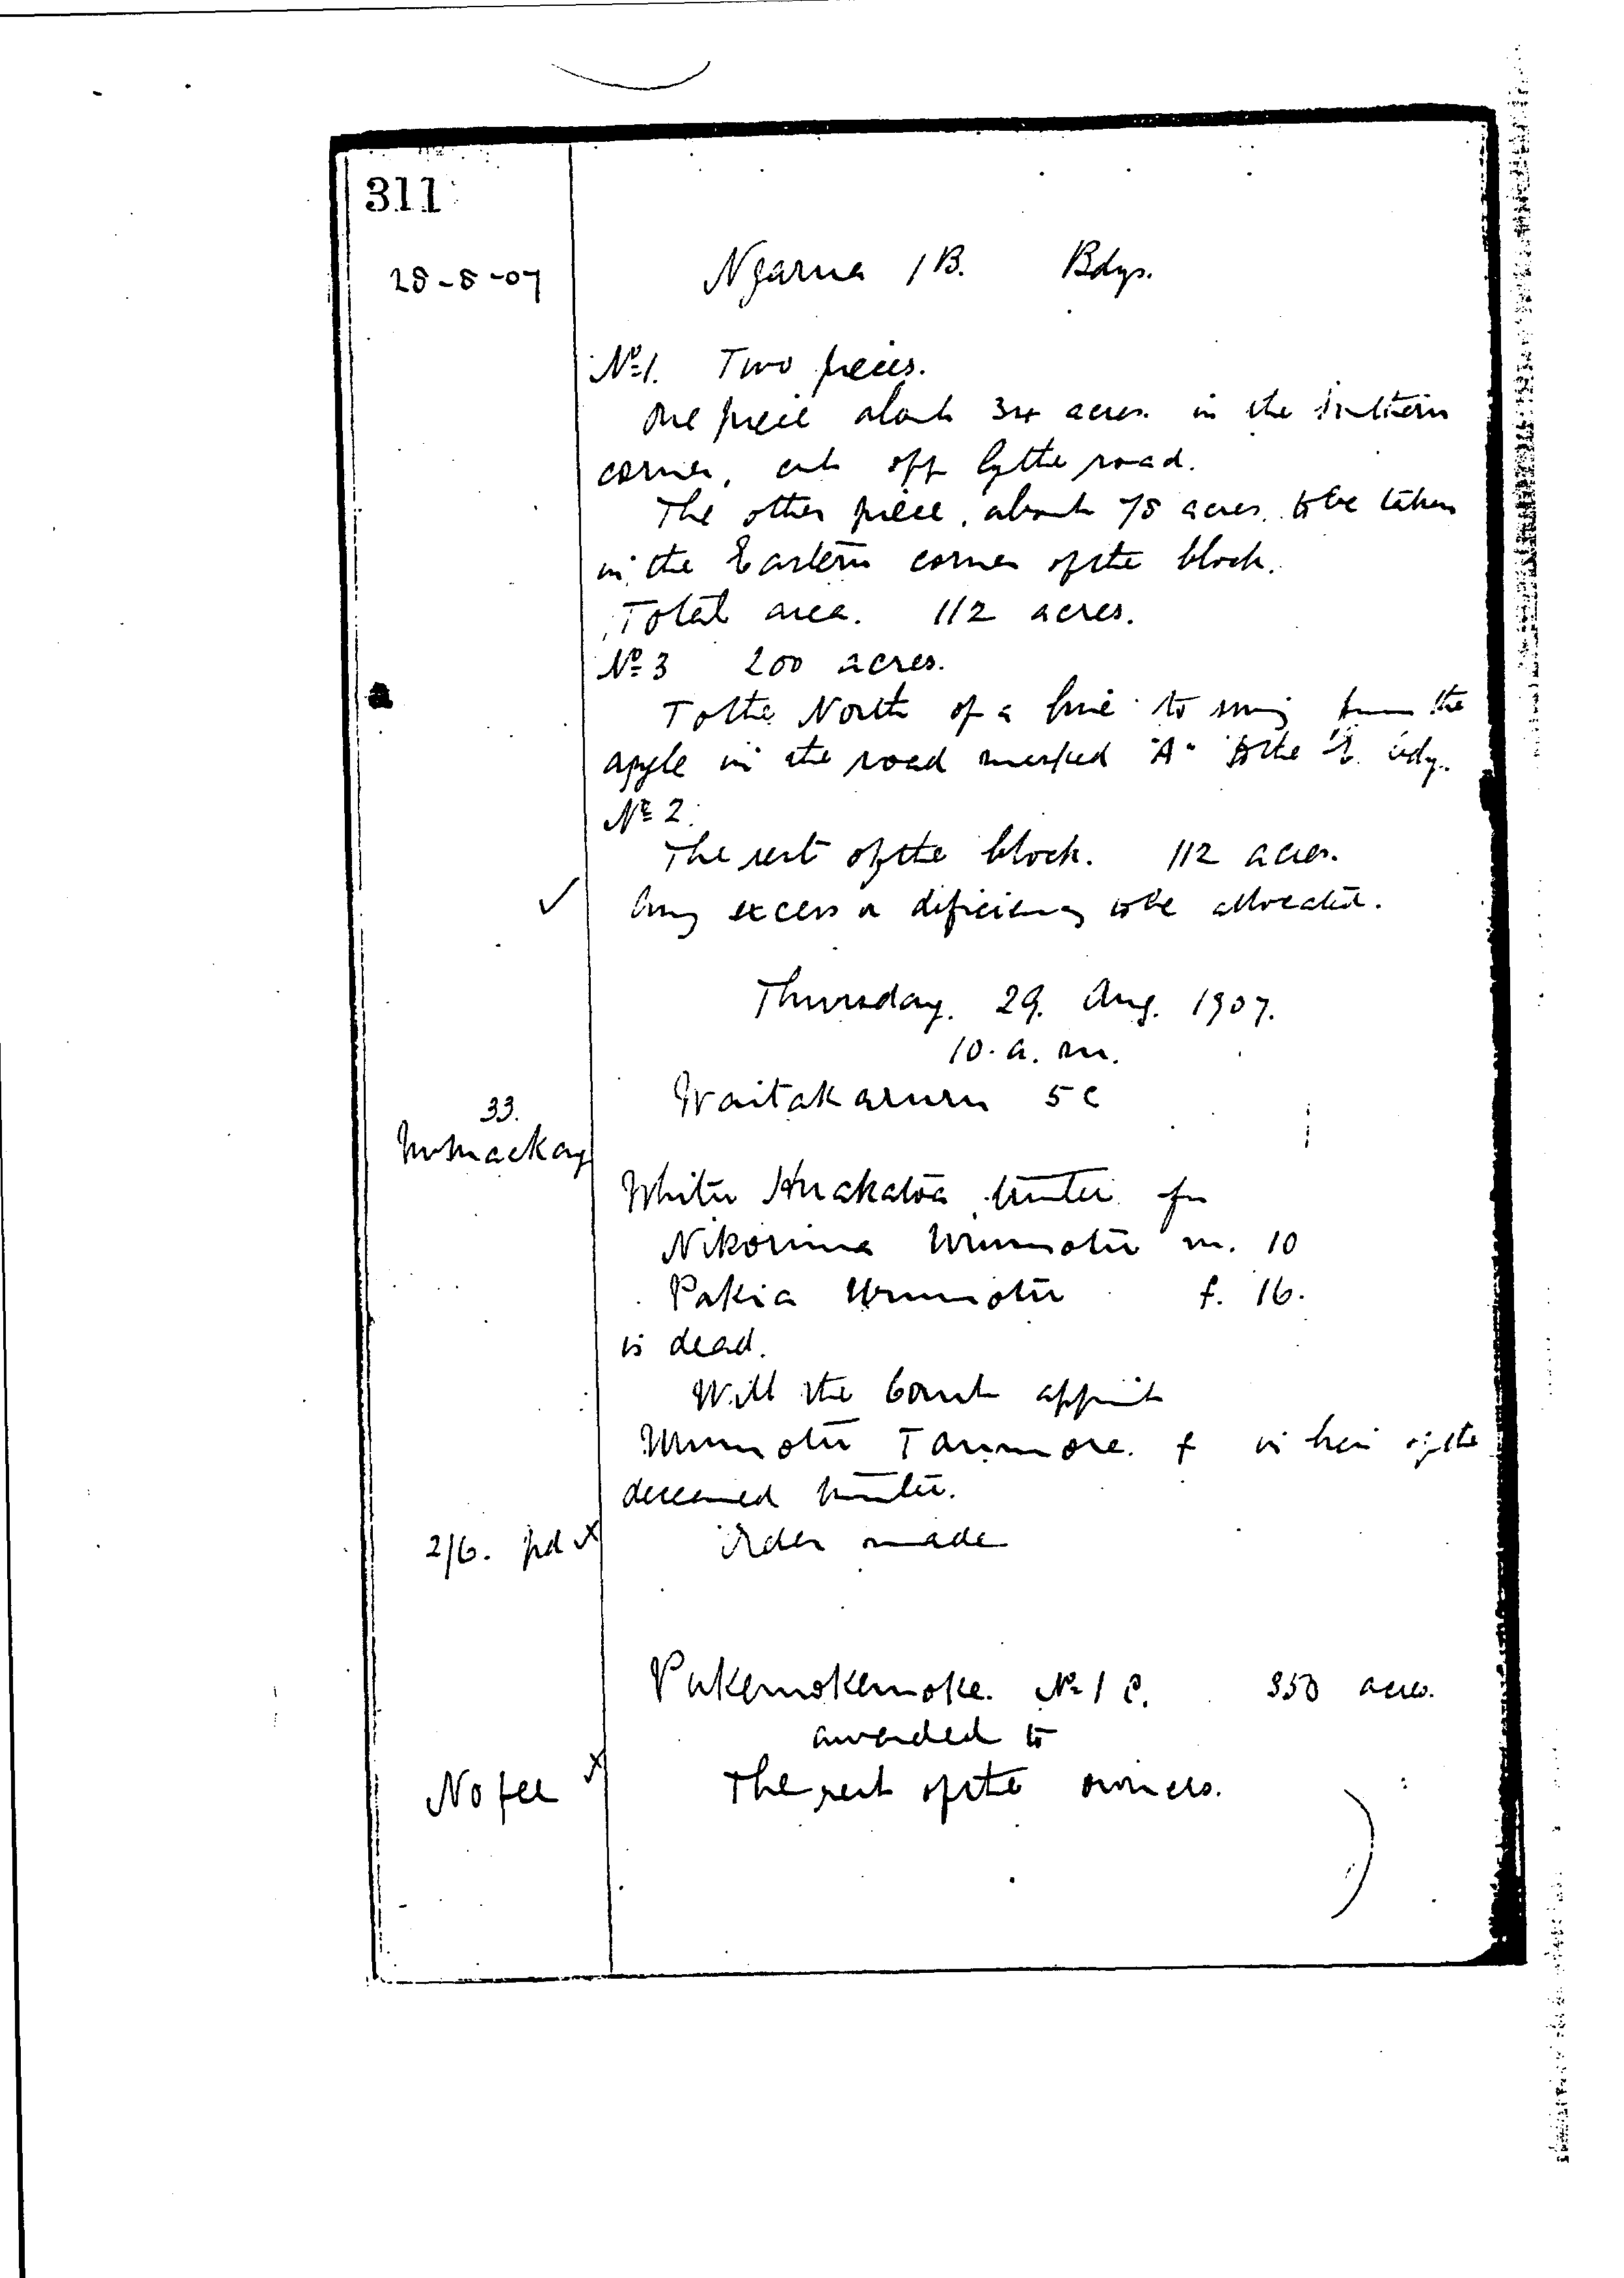 311
28-8-07
Ngarua 1B. Bdys.
No 1. Two pieces.
One piece about 34 acres in the Southern
corner, cut off by the road.
The other piece, about 78 acres, to be taken
in the Eastern corner of the block.
Total area. 112 acres.
No 3 200 acres.
To the North of a line to run from the
angle in the road marked "A" to the E. bdy.
No 2.
The rest of the block. 112 acres.
✓ Any excess or deficiency to be allocated.
Thursday. 29. Aug. 1907.
10. a. m.
33. Waitakaruru 5C
Mr Mackay
Whitu Huakatoa trustee for
Nikorima Urumotu m. 10
Pakia Urumotu f. 16.
is dead.
Will the Court appoint
Urumotu f in lieu of the
deceased trustee.
2/6. pd x Order made
Pukemokemoke. No 1 C. 350 acres.
awarded to
No fee x The rest of the owners.